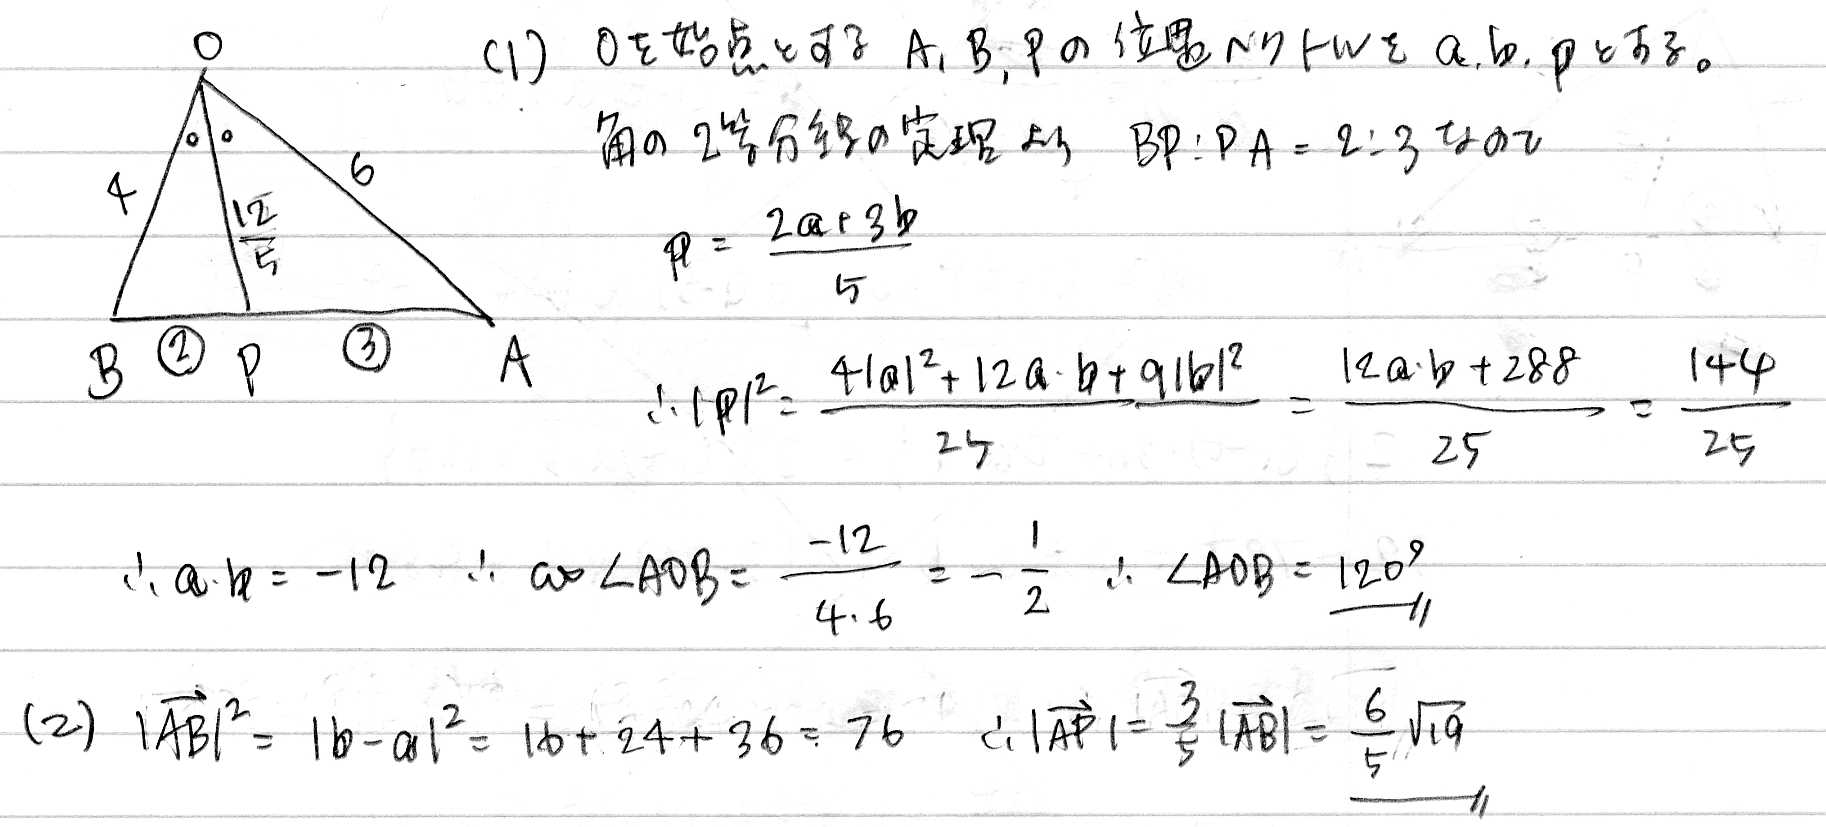 O
4
6
12/5
B ② P ③ A
(1) Oを始点とする A, B, Pの位置ベクトルを a, b, p とする。
角の2等分線の定理より BP:PA = 2:3 なので
p = (2a+3b)/5
∴ |p|² = (4|a|²+12a·b+9|b|²)/25 = (12a·b+288)/25 = 144/25
∴ a·b = -12 ∴ cos∠AOB = -12/(4·6) = -1/2 ∴ ∠AOB = 120°
(2) |AB|² = |b-a|² = 16+24+36 = 76 ∴ |AP| = 3/5 |AB| = 6/5 √19